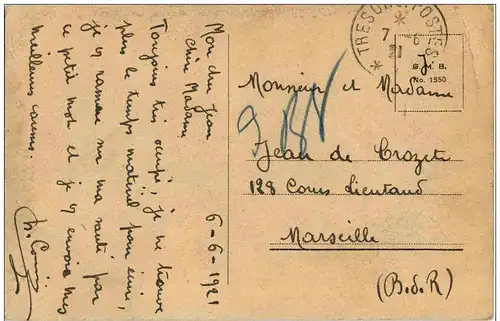 6-6-1921
Mon cher Jean
Chère Madame
Toujours très occupé, je ne trouve
plus le temps matériel pour écrire,
je vs rassure sur ma santé par
ce petit mot et je vs envoie mes
meilleurs
TRESOR ET POSTES
7 -6
21
G. M. B.
No. 1550
Monsieur et Madame
Jean de Crozet
128 Cours Lieutaud
Marseille
(B.d.R)